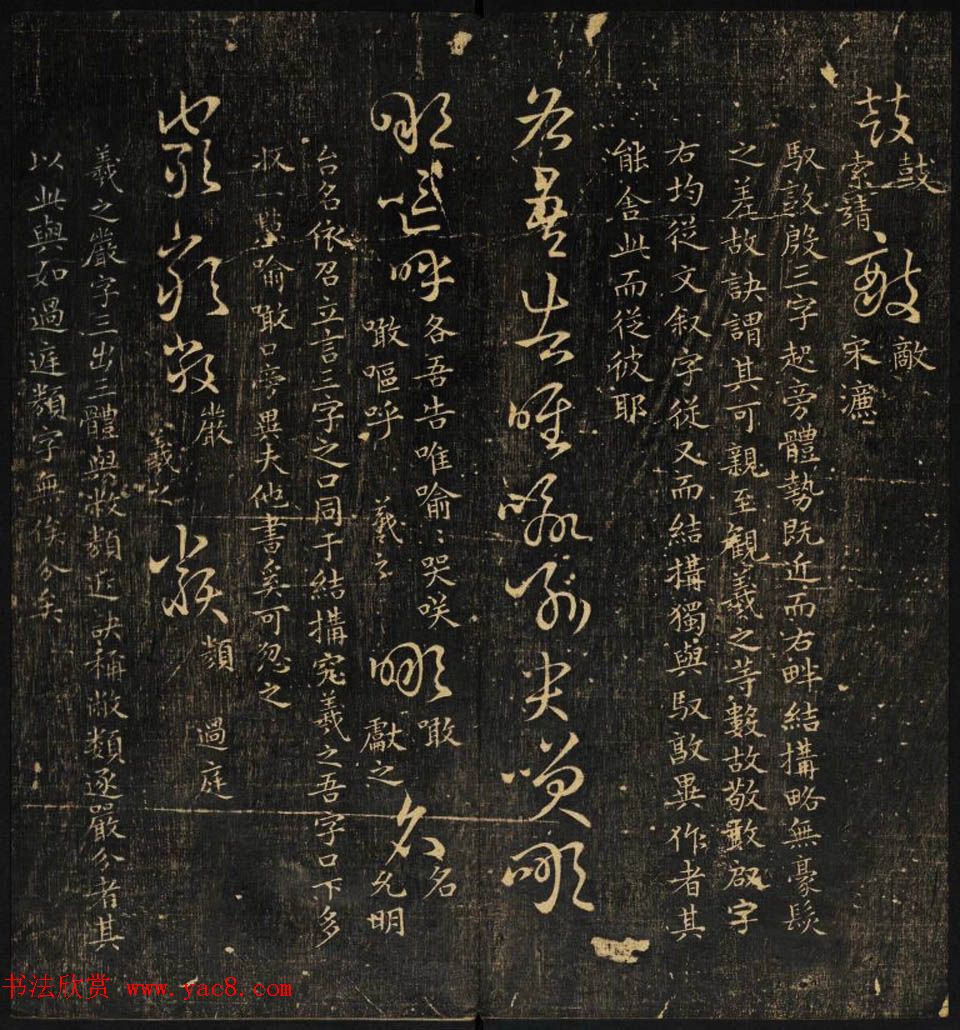 鼓 鼓 索靖 敵 敵 宋濂
馭敦殷三字起旁體勢既近而右畔結搆略無豪髮
之差故訣謂其可親至觀羲之等數故敬敢啟字
右均從文叙字從又而結搆獨與馭敦異作者其
能舍此而從彼耶
各吾告唯喻喻哭咲噉
噉嘔呼 各吾告唯喻〻哭咲 噉嘔呼 羲之 噉 噉 獻之 名 名 允明
台名依召立言三字之口同于結搆宛羲之吾字口下多
一喻噉口旁異夫他書奚可忽之
巖巖嚴 嚴 羲之 類 類 過庭
羲之嚴字三出三體與類近訣稱敵類逐嚴分者其
以此與如過庭類字無俟分矣
书法欣赏 www.yac8.com